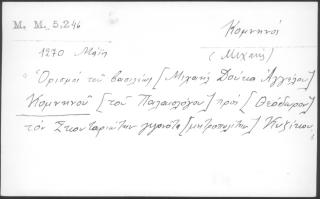 M. M. 5,246
Κομνηνοί
1270 Μάϊη
(Μιχαήλ)
Ὁρισμοί τοῦ βασιλέως [Μιχαήλ Δούκα Ἀγγέλου
Κομνηνοῦ [τοῦ Παλαιολόγου] πρός [Θεόδωρον]
τόν Σκουταριώτην γεγονότα [μητροπολίτην] Κυζίκου